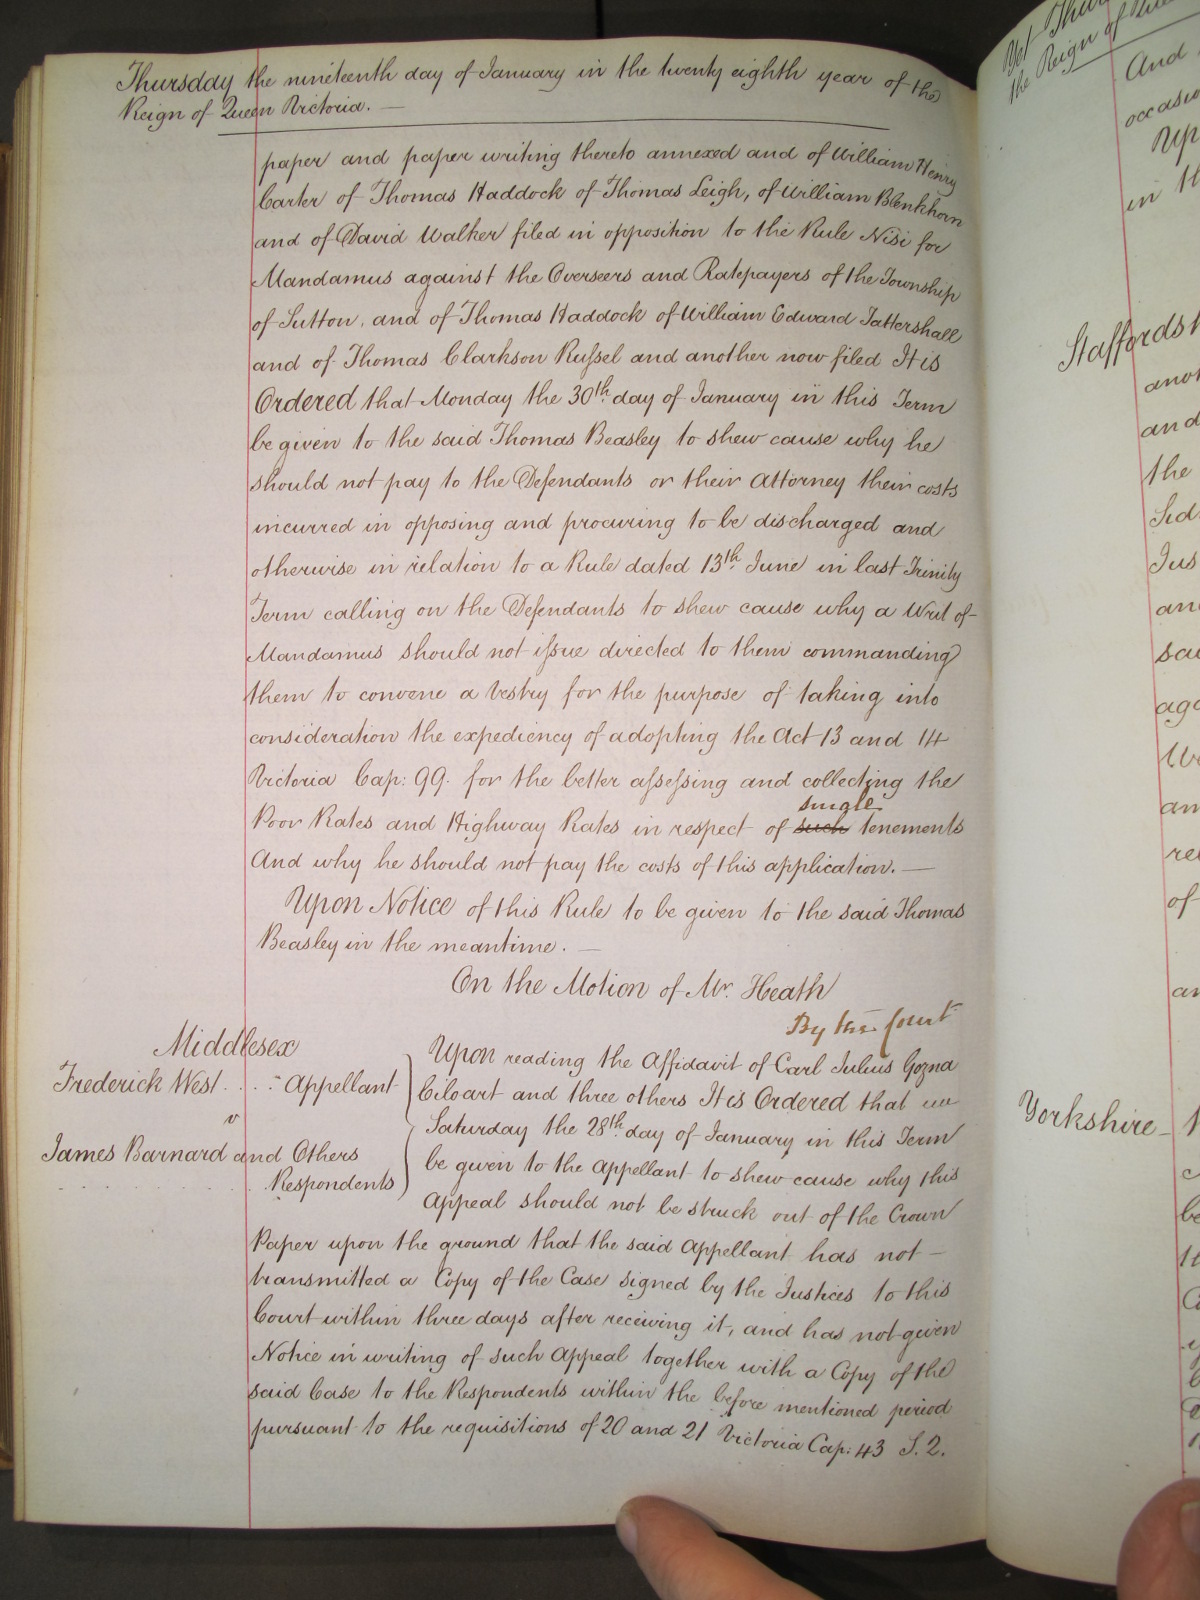 Thursday the nineteenth day of January in the twenty eighth year of the
Reign of Queen Victoria. —
paper and paper writing thereto annexed and of William Henry
Carter of Thomas Haddock of Thomas Leigh, of William Blenkhorn
and of David Walker filed in opposition to the Rule Nisi for
Mandamus against the Overseers and Ratepayers of the Township
of Sutton, and of Thomas Haddock of William Edward Tattershall
and of Thomas Clarkson Russel and another now filed It is
Ordered that Monday the 30th. day of January in this Term
be given to the said Thomas Beasley to shew cause why he
should not pay to the Defendants or their Attorney their costs
incurred in opposing and procuring to be discharged and
otherwise in relation to a Rule dated 13th. June in last Trinity
Term calling on the Defendants to shew cause why a Writ of
Mandamus should not issue directed to them commanding
them to convene a Vestry for the purpose of taking into
consideration the expediency of adopting the Act 13 and 14
Victoria Cap: 99. for the better assessing and collecting the
small
Poor Rates and Highway Rates in respect of such tenements
And why he should not pay the costs of this application. —
Upon Notice of this Rule to be given to the said Thomas
Beasley in the meantime. —
On the Motion of Mr. Heath
By the Court
Middlesex
Frederick West .... Appellant
v
James Barnard and Others
Respondents
Upon reading the Affidavit of Carl Julius
and three others It is Ordered that
Saturday the 28th. day of January in this Term
be given to the Appellant to shew cause why this
Appeal should not be struck out of the Crown
Paper upon the ground that the said Appellant has not —
transmitted a Copy of the Case signed by the Justices to this
Court within three days after receiving it, and has not given
Notice in writing of such Appeal together with a Copy of the
said Case to the Respondents within the before mentioned period
pursuant to the requisitions of 20 and 21 Victoria Cap: 43 S. 2.
the Reign of
And
Up
in
and
the
Yorkshire —